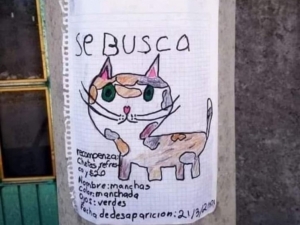 se BUSCA
recompenza:
Cheetos, refres
co y $20
Nombre: manchas
color: manchada
Ojos: verdes
fecha de desaparicion: 21/3/